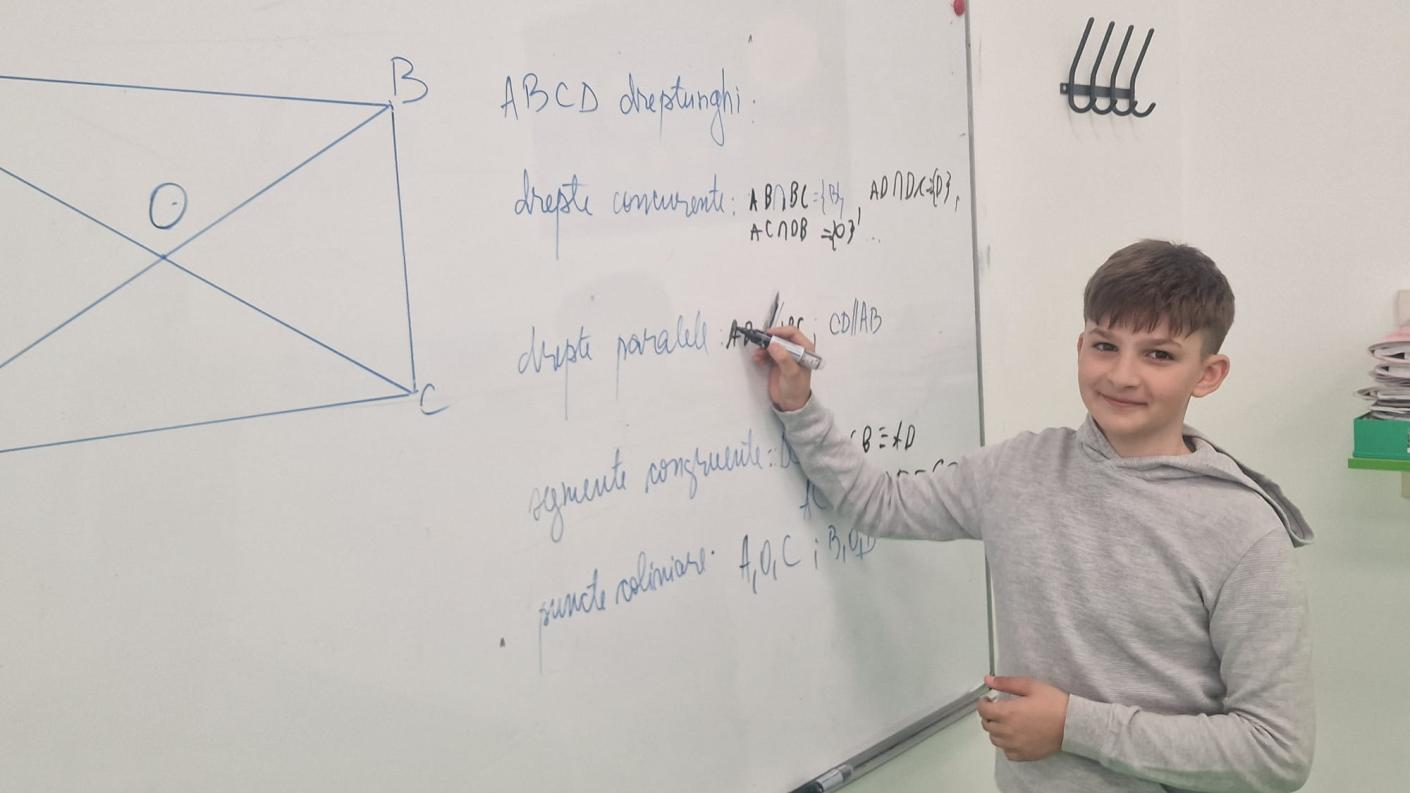 B
O
C
ABCD dreptunghi:
drepte concurente: AB∩BC={B}, AD∩DC={D},
AC∩DB={O} ...
drepte paralele: CD//AB
segmente congruente: CB≡AD
puncte coliniare: A,O,C ; B,O,D